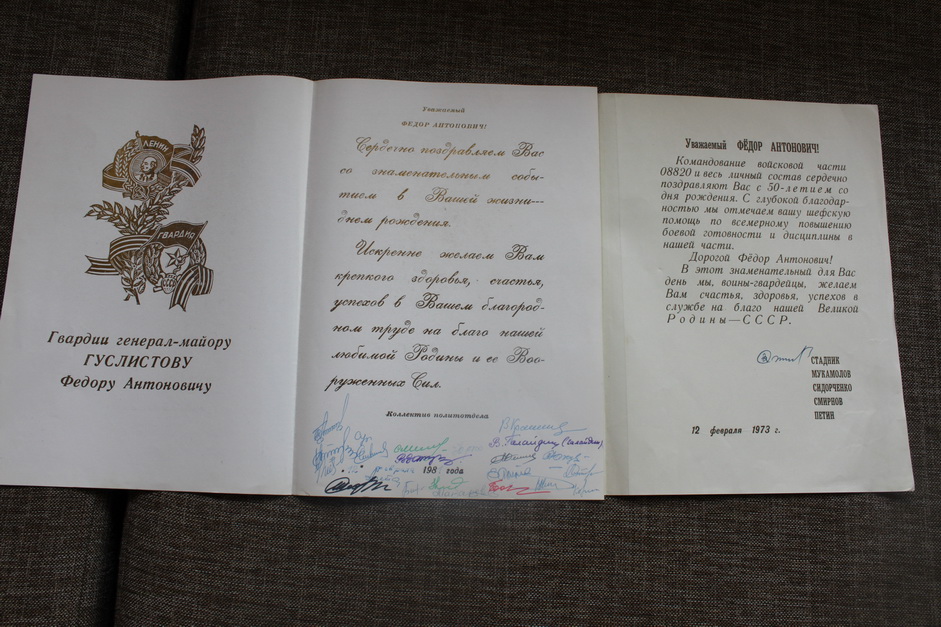 ЛЕНИН
ГВАРДИЯ
Гвардии генерал-майору
ГУСЛИСТОВУ
Федору Антоновичу
Уважаемый
ФЕДОР АНТОНОВИЧ!
Сердечно поздравляем Вас
со знаменательным собы-
тием в Вашей жизни---
днем рождения.
Искренне желаем Вам
крепкого здоровья, счастья,
успехов в Вашем благород-
ном труде на благо нашей
любимой Родины и ее Воо-
руженных Сил.
Коллектив политотдела
198 года
Уважаемый ФЁДОР АНТОНОВИЧ!
Командование войсковой части
08820 и весь личный состав сердечно
поздравляют Вас с 50-летием со
дня рождения. С глубокой благодар-
ностью мы отмечаем вашу шефскую
помощь по всемерному повышению
боевой готовности и дисциплины в
нашей части.
Дорогой Фёдор Антонович!
В этот знаменательный для Вас
день мы, воины-гвардейцы, желаем
Вам счастья, здоровья, успехов в
службе на благо нашей Великой
Родины—СССР.
СТАДНИК
МУКАМОЛОВ
СИДОРЧЕНКО
СМИРНОВ
ПЕТИН
12 февраля 1973 г.